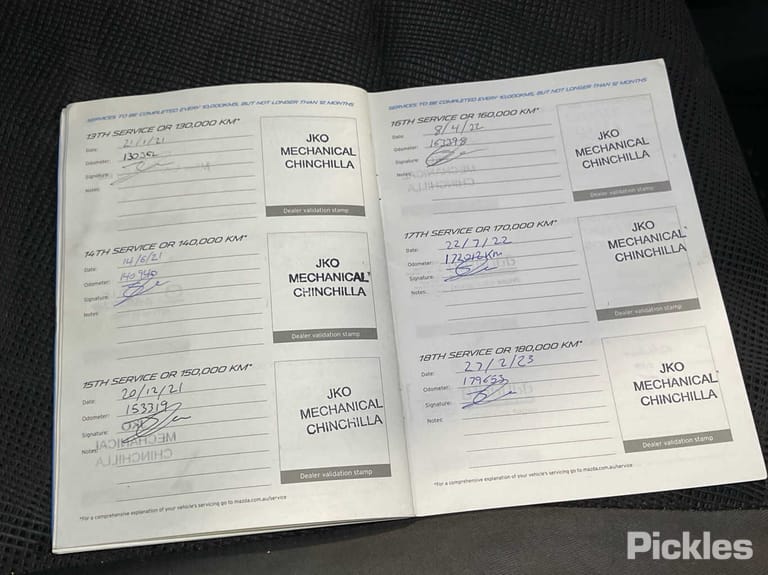 SERVICES TO BE COMPLETED EVERY 10,000KMS, BUT NOT LONGER THAN 12 MONTHS
13TH SERVICE OR 130,000 KM*
Date: 21/1/21
Odometer: 130362
Signature:
Notes:
JKO
MECHANICAL
CHINCHILLA
Dealer validation stamp
14TH SERVICE OR 140,000 KM*
Date: 14/6/21
Odometer: 140940
Signature:
Notes:
JKO
MECHANICAL
CHINCHILLA
Dealer validation stamp
15TH SERVICE OR 150,000 KM*
Date: 20/12/21
Odometer: 153319
Signature:
Notes:
JKO
MECHANICAL
CHINCHILLA
JKO
MECHANICAL
CHINCHILLA
Dealer validation stamp
*For a comprehensive explanation of your vehicle's servicing go to mazda.com.au/service
SERVICES TO BE COMPLETED EVERY 10,000KMS, BUT NOT LONGER THAN 12 MONTHS
16TH SERVICE OR 160,000 KM*
Date: 8/4/22
Odometer: 163398
Signature:
Notes:
MECHANICAL
CHINCHILLA
JKO
MECHANICAL
CHINCHILLA
Dealer validation stamp
17TH SERVICE OR 170,000 KM*
Date: 22/7/22
Odometer: 172012km
Signature:
Notes:
JKO
MECHANICAL
CHINCHILLA
Dealer validation stamp
18TH SERVICE OR 180,000 KM*
Date: 27/2/23
Odometer: 179653
Signature:
Notes:
JKO
MECHANICAL
CHINCHILLA
Dealer validation stamp
*For a comprehensive explanation of your vehicle's servicing go to mazda.com.au/service
Pickles